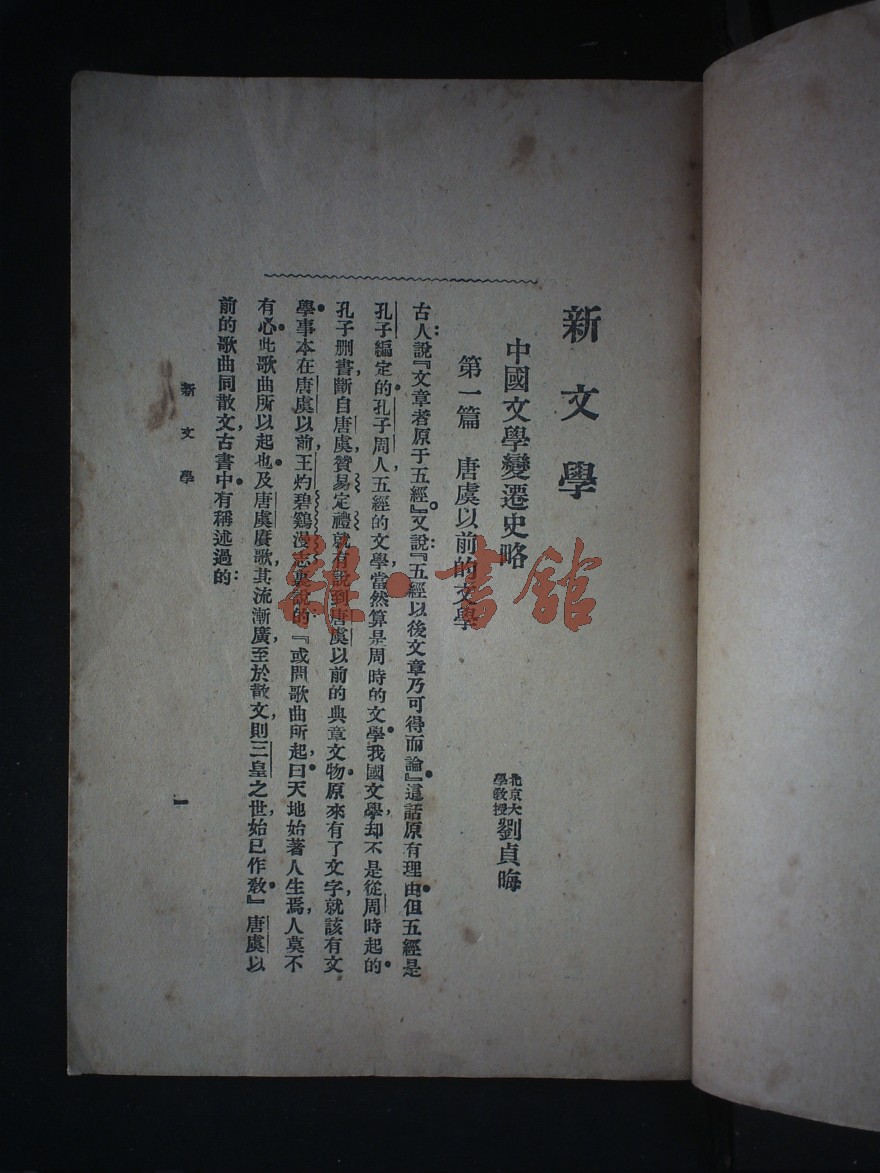 新文學
中國文學變遷史略
北京大學教授劉貞晦
第一篇 唐虞以前的文學
古人說:『文章者原于五經。』又說:『五經以後文章乃可得而論。』這話原有理由。但五經是
孔子編定的。孔子周人,五經的文學當然算是周時的文學。我國文學,却不是從周時起的。
孔子删書斷自唐虞,贊易定禮,就有說到唐虞以前的典章文物。原來有了文字,就該有文
學。事本在唐虞以前,王灼碧鷄漫志裏說的:『或問歌曲所起,曰。天地始著人生焉,人莫不
有心。此歌曲所以起也。及唐虞賡歌,其流漸廣,至於散文,則三皇之世,始已作教。』唐虞以
前的歌曲同散文,古書中。有稱述過的:
新文學
一
雜·書館